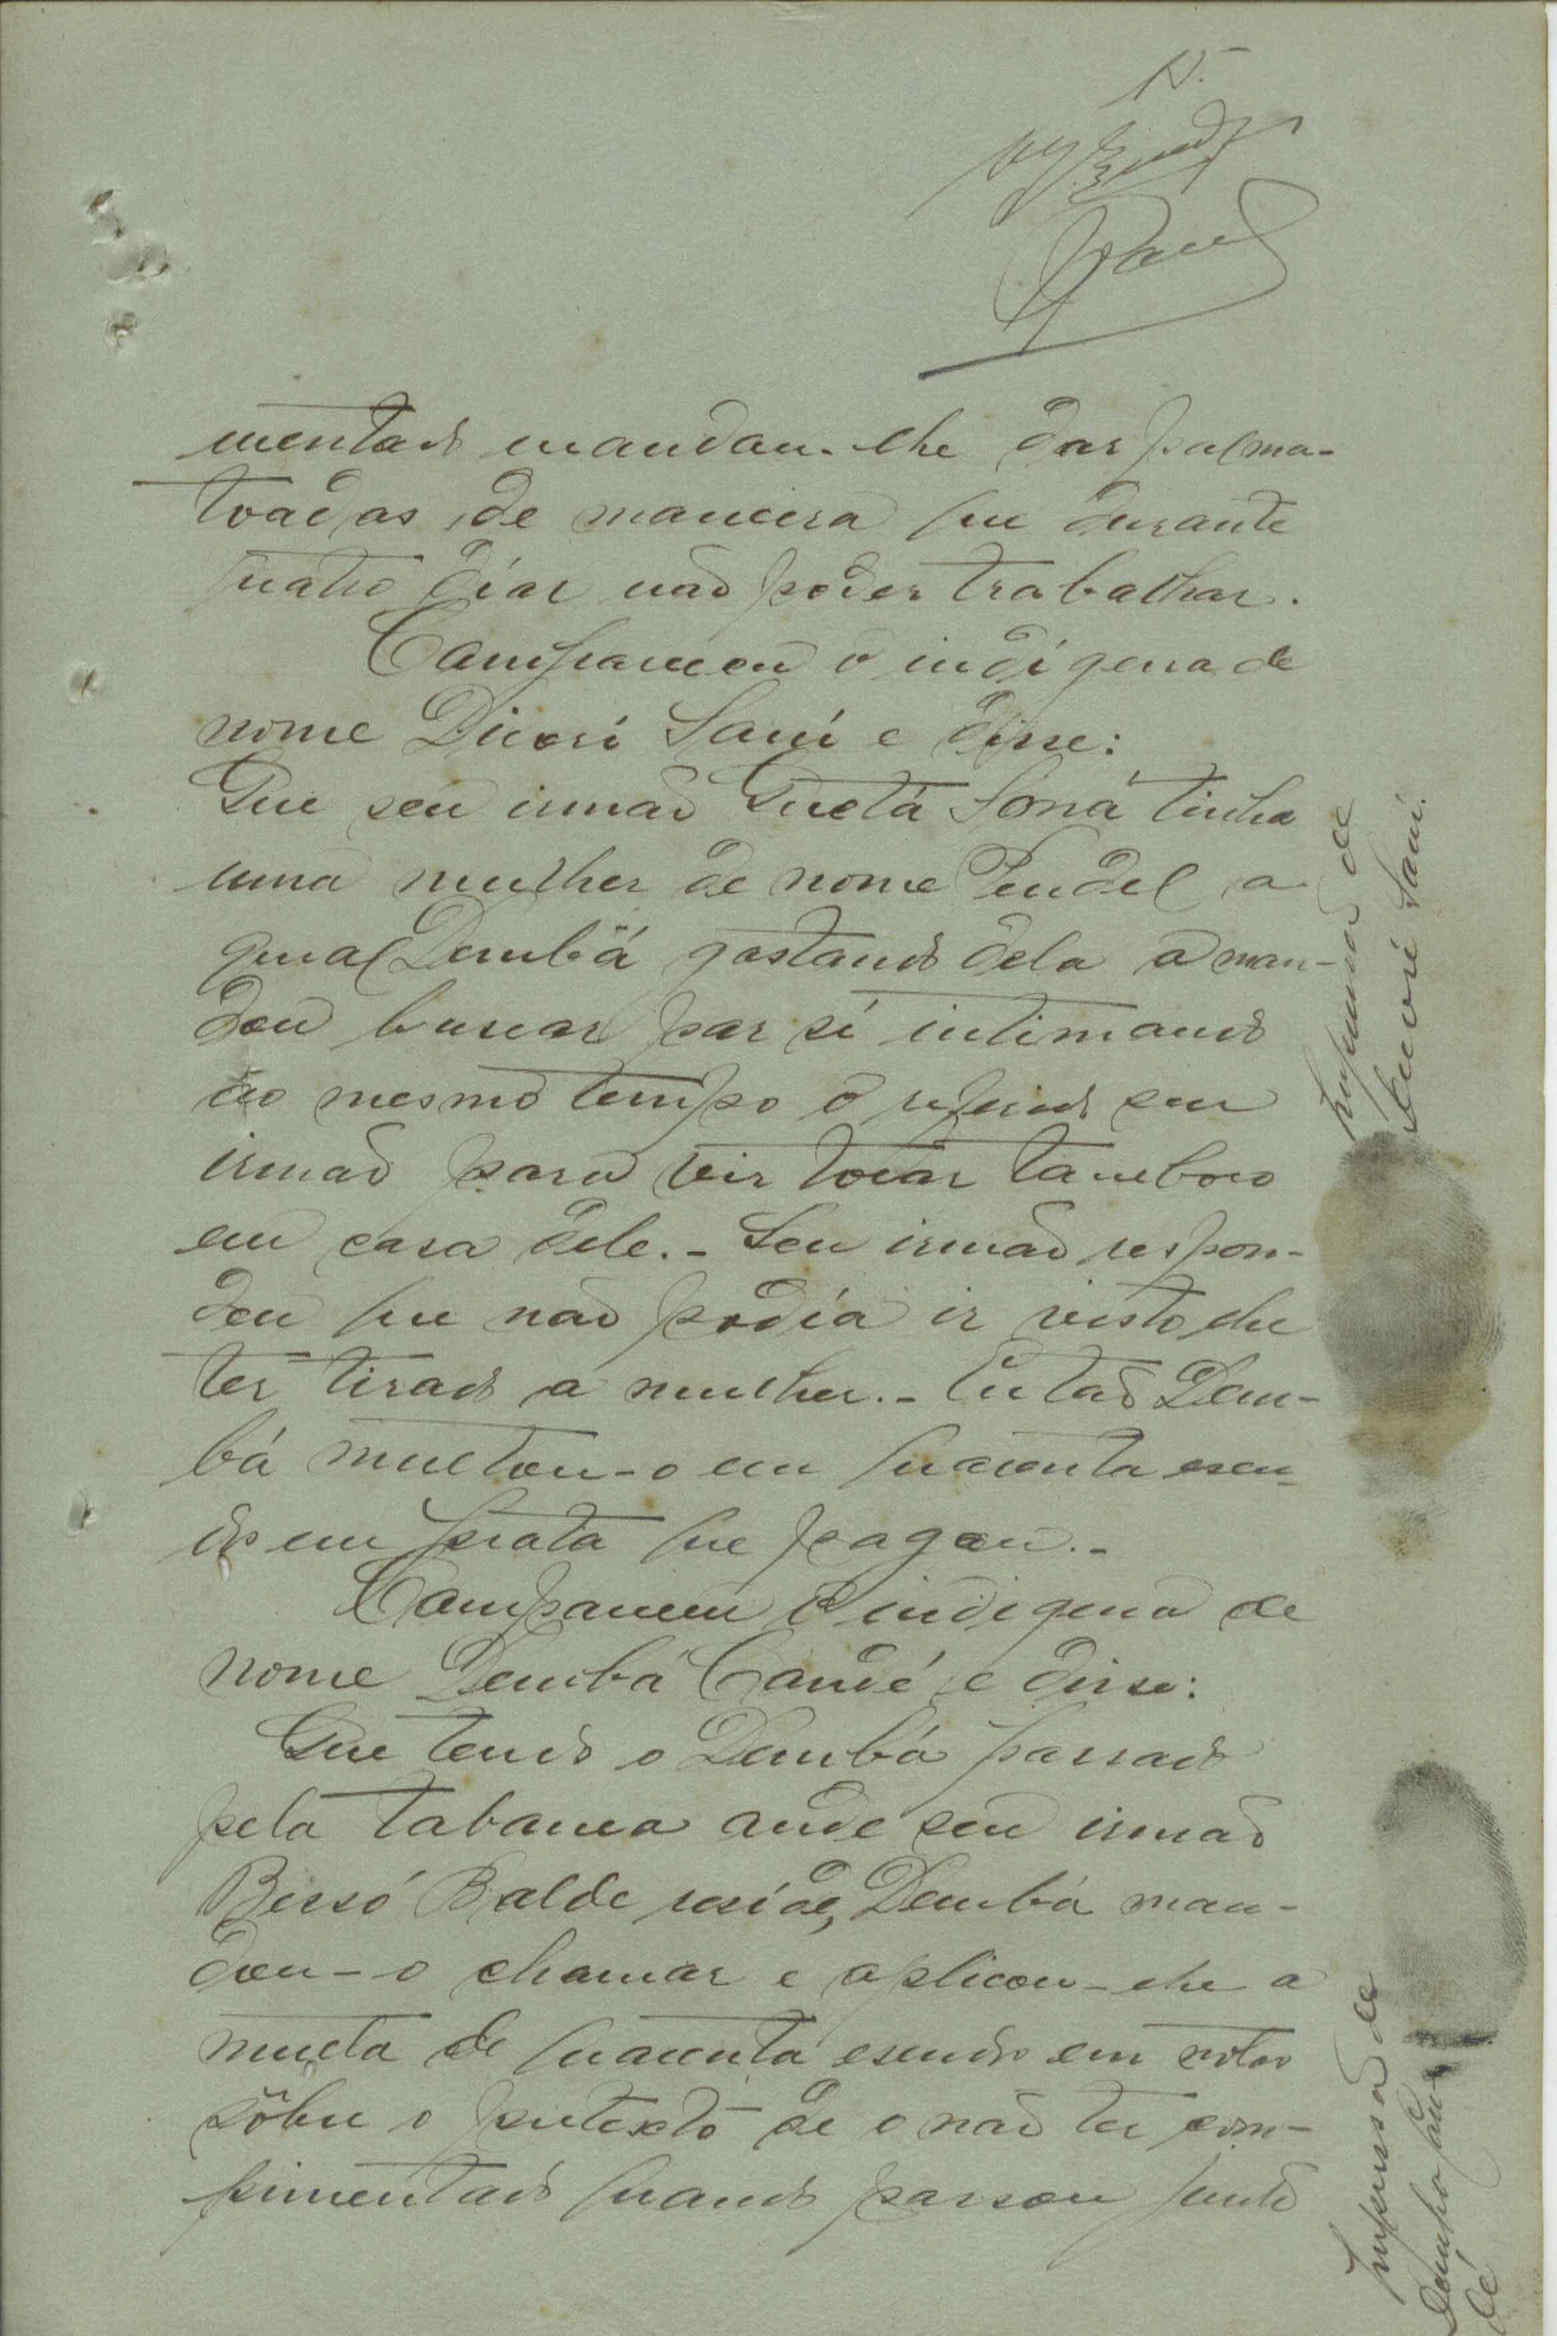 15.
mentado mandou-lhe dar palma-
toadas de maneira que durante
quatro dias não poder trabalhar.
Compareceu o indígena de
nome Dicori Sani e disse:
Que seu irmão Quetá Soná tinha
uma mulher de nome Pendel a
qual Dembá gostando dela a man-
dou buscar par sí intimando
ao mesmo tempo o referido seu
irmão para vir tocar tamboro
em casa dele. - Seu irmão respon-
deu que não podía ir visto lhe
ter tirado a mulher. - Então Dem-
bá multou-o em quarenta escu-
dos em prata que pagou. -
Compareceu o indigena de
nome Dembá Candé e disse:
Que tendo o Dembá passado
pela tabanca onde seu irmão
Bessó Balde reside, Dembá man-
dou-o chamar e aplicou-lhe a
multa de quarenta escudos em notas
sôbre o pretexto de o não ter com-
primentado quando passou junto
Impressão de
Dicori Sani.
Impressão de
Dembá Can-
dé